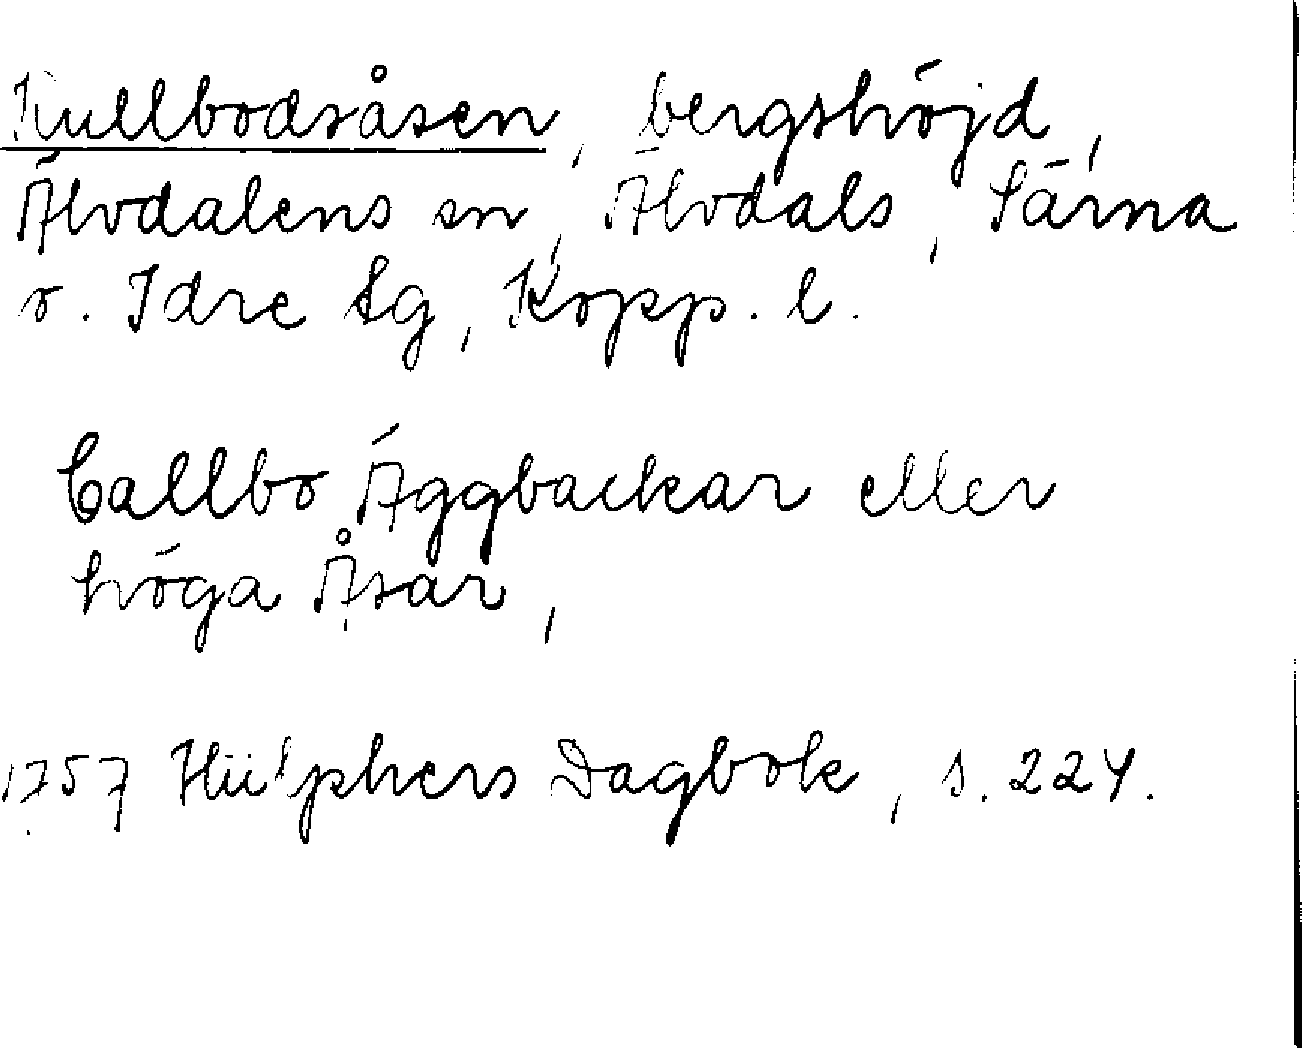 Kullbodsåsen, bergshöjd,
Älvdalens sn, Älvdals, Särna
o. Idre tg, Kopp. l.
Callbo Äggbackar eller
höga Åsar,
1757 Hülphers Dagbok, s. 224.